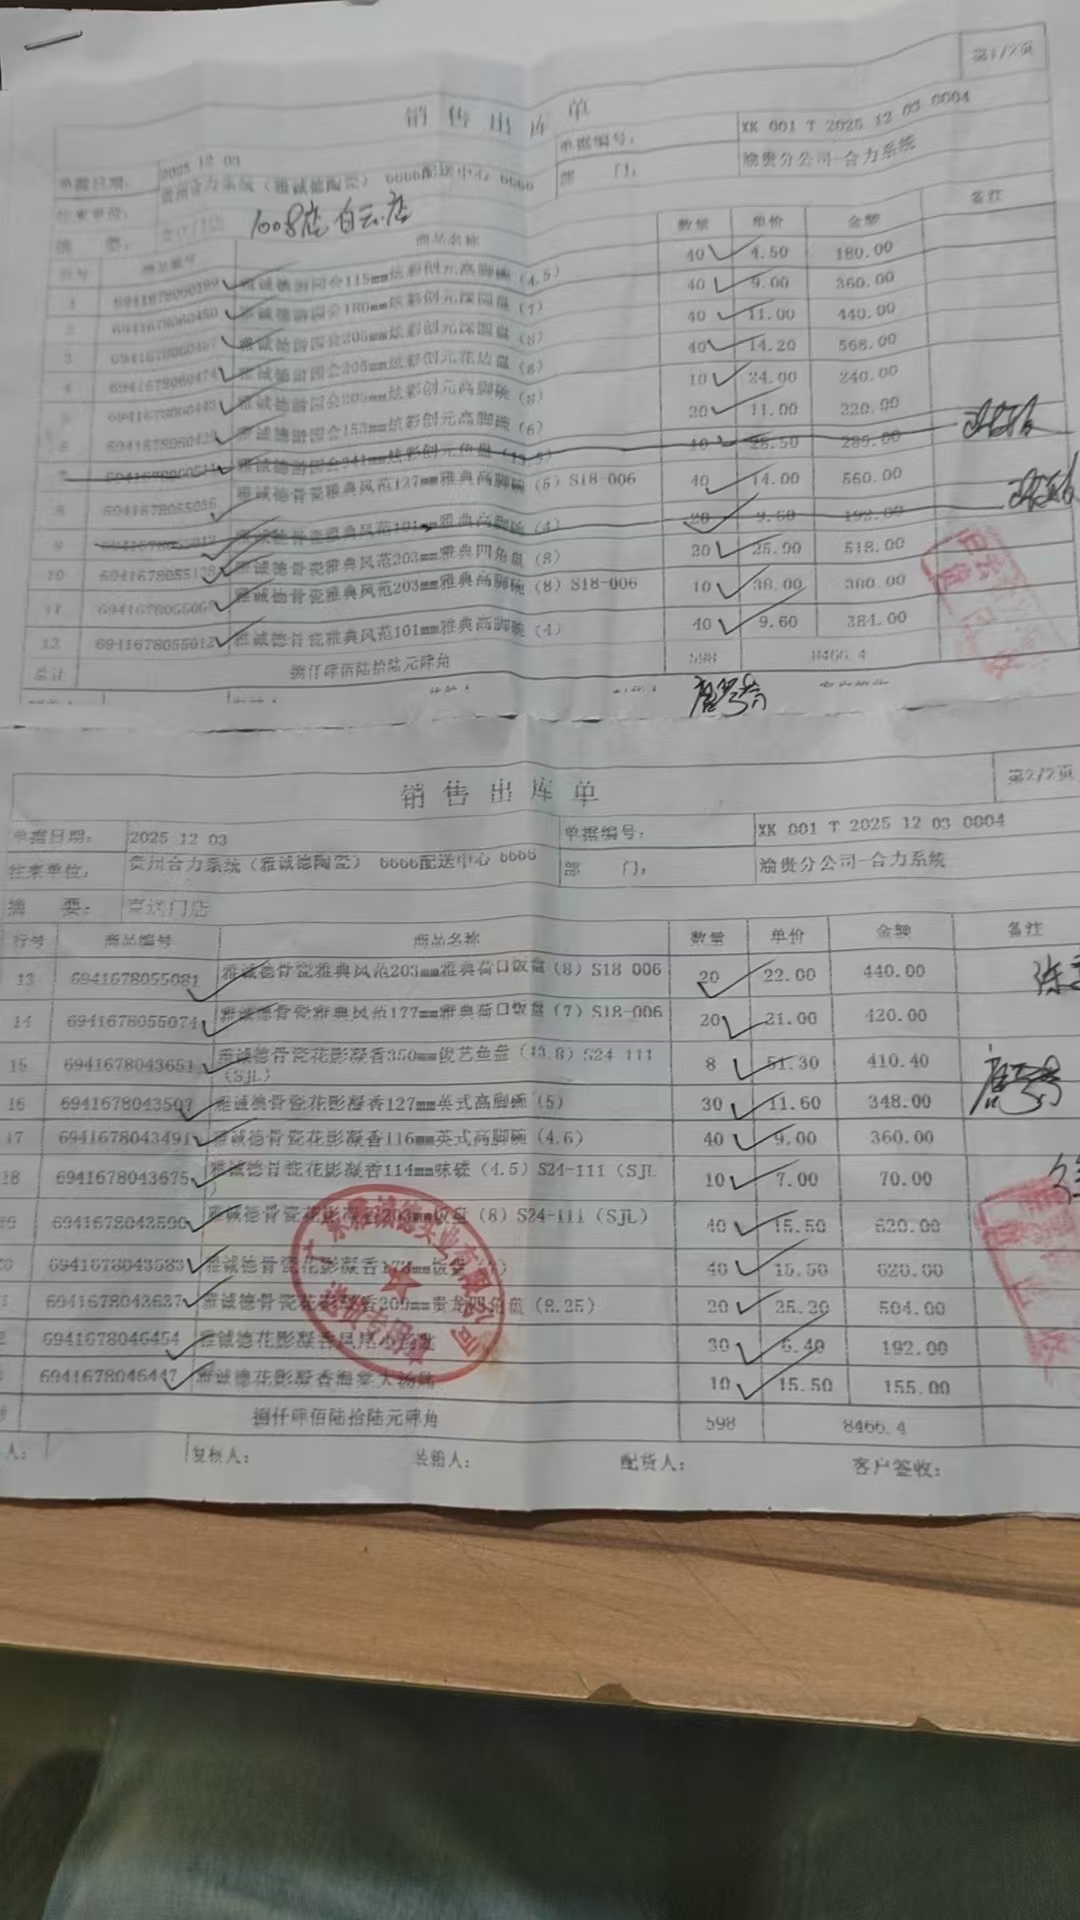 第1/2页
销售出库单
单据日期: 2025 12 03 单据编号: XK 001 T 2025 12 03 0004
往来单位: 贵州合力系统（雅诚德陶瓷） 6666配送中心 6666 部 门: 渝贵分公司-合力系统
摘 要: 直送门店 1008店 白云店
行号 商品编号 商品名称 数量 单价 金额 备注
1 雅诚德游园会115mm炫彩创元高脚碗（4.5） 40 4.50 180.00
2 6941678060450 雅诚德游园会180mm炫彩创元深圆盘（7） 40 9.00 360.00
3 雅诚德游园会205mm炫彩创元深圆盘（8） 40 11.00 440.00
4 6941678060474 雅诚德游园会205mm炫彩创元花边盘（8） 40 14.20 568.00
5 6941678060443 雅诚德游园会205mm炫彩创元高脚碗（8） 10 24.00 240.00
6 雅诚德游园会153mm炫彩创元高脚碗（6） 20 11.00 220.00
7 雅诚德游园会241mm炫彩创元鱼盘 10 28.50 285.00
8 6941678055036 雅诚德骨瓷雅典风范127mm雅典高脚碗（5）S18-006 40 14.00 560.00
9 6941678055012 雅诚德骨瓷雅典风范101mm雅典高脚碗（4） 20 9.60 192.00
10 6941678055128 雅诚德骨瓷雅典风范203mm雅典四角盘（8） 20 25.90 518.00
11 雅诚德骨瓷雅典风范203mm雅典高脚碗（8）S18-006 10 38.00 380.00
12 6941678055012 雅诚德骨瓷雅典风范101mm雅典高脚碗（4） 40 9.60 384.00
总计 捌仟肆佰陆拾陆元肆角 598 8466.4
第2/2页
销售出库单
单据日期: 2025 12 03 单据编号: XK 001 T 2025 12 03 0004
往来单位: 贵州合力系统（雅诚德陶瓷） 6666配送中心 6666 部 门: 渝贵分公司-合力系统
摘 要: 直送门店
行号 商品编号 商品名称 数量 单价 金额 备注
13 6941678055081 雅诚德骨瓷雅典风范203mm雅典荷口饭盘（8）S18 006 20 22.00 440.00
14 6941678055074 雅诚德骨瓷雅典风范177mm雅典荷口饭盘（7）S18-006 20 21.00 420.00
15 6941678043651 雅诚德骨瓷花影凝香350mm俊艺鱼盘（13.8）S24-111 8 51.30 410.40
（SJL）
16 6941678043507 雅诚德骨瓷花影凝香127mm英式高脚碗（5） 30 11.60 348.00
17 6941678043491 雅诚德骨瓷花影凝香116mm英式高脚碗（4.6） 40 9.00 360.00
18 6941678043675 雅诚德骨瓷花影凝香114mm味碟（4.5）S24-111（SJL 10 7.00 70.00
）
6941678043590 雅诚德骨瓷花影凝香203mm饭盘（8）S24-111（SJL） 40 15.50 620.00
6941678043583 雅诚德骨瓷花影凝香 40 15.50 620.00
6941678043637 雅诚德骨瓷花影凝香209mm贵龙四角盘（8.25） 20 25.20 504.00
6941678046454 雅诚德花影凝香 30 6.40 192.00
6941678046447 雅诚德花影凝香海棠大汤匙 10 15.50 155.00
捌仟肆佰陆拾陆元肆角 598 8466.4
人: 复核人: 装箱人: 配货人: 客户签收: